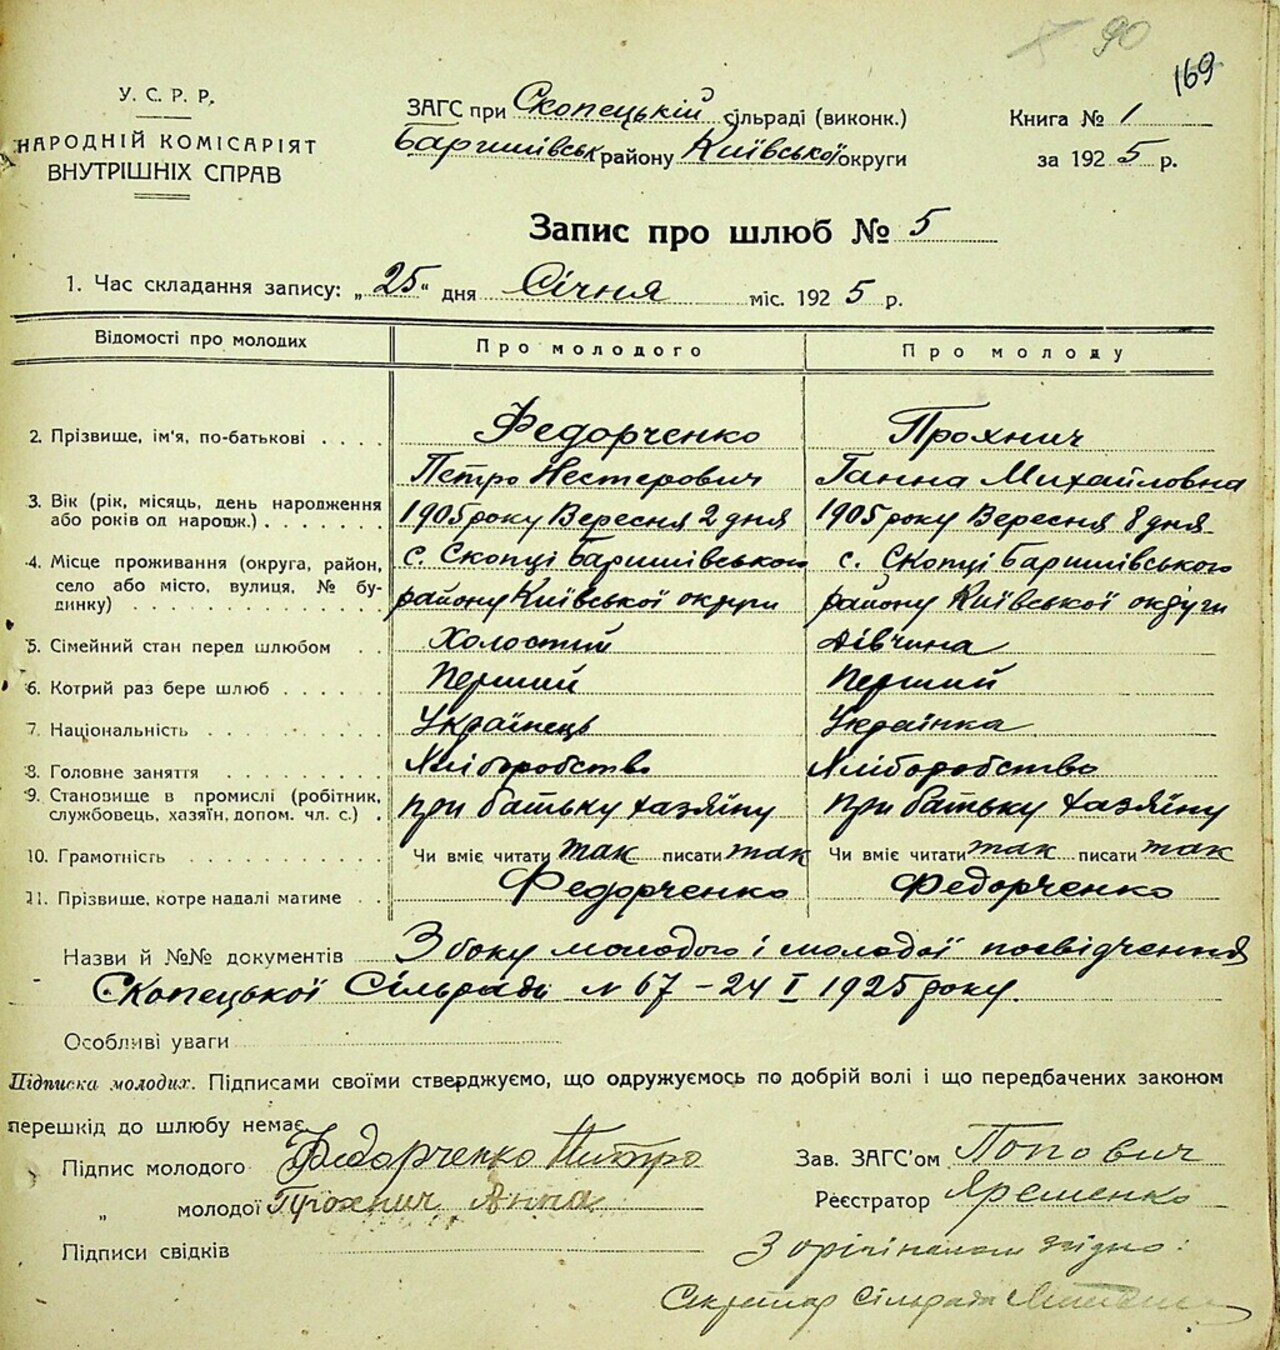 90
169
У. С. Р. Р.
НАРОДНІЙ КОМІСАРІЯТ
ВНУТРІШНІХ СПРАВ
ЗАГС при Скопецькій сільраді (виконк.)
Баришівськ району Київської округи
Книга № 1
за 1925 р.
Запис про шлюб № 5
1. Час складання запису: „25" дня Січня міс. 1925 р.
Відомості про молодих Про молодого Про молоду
2. Прізвище, ім'я, по-батькові . . . . Федорченко Прохнич
Петро Нестерович Ганна Михайловна
3. Вік (рік, місяць, день народження
або років од народж.) . . . . . . . 1905 року Вересня 2 дня 1905 року Вересня 8 дня
4. Місце проживання (округа, район, с. Скопці Баришівського с. Скопці Баришівського
село або місто, вулиця, № бу-
динку) . . . . . . . . . . . . . . . району Київської округи району Київської округи
5. Сімейний стан перед шлюбом . . Холостий Дівчина
6. Котрий раз бере шлюб . . . . . . Перший Перший
7. Національність . . . . . . . . . . Українець Українка
8. Головне заняття . . . . . . . . . Хліборобство Хліборобство
9. Становище в промислі (робітник,
службовець, хазяїн, допом. чл. с.) . при батьку хазяїну при батьку хазяїну
10. Грамотність . . . . . . . . . . . Чи вміє читати так писати так Чи вміє читати так писати так
11. Прізвище, котре надалі матиме . . Федорченко Федорченко
Назви й №№ документів З боку молодого і молодої посвідчення
Скопецької Сільради № 67 – 24 I 1925 року.
Особливі уваги
Підписка молодих. Підписами своїми стверджуємо, що одружуємось по добрій волі і що передбачених законом
перешкід до шлюбу немає
Підпис молодого Федорченко Питро
„ молодої Прохнич Анна
Підписи свідків
Зав. ЗАГС'ом Попович
Реєстратор Яременко
З оріґіналом згідно:
Секретар Сільради